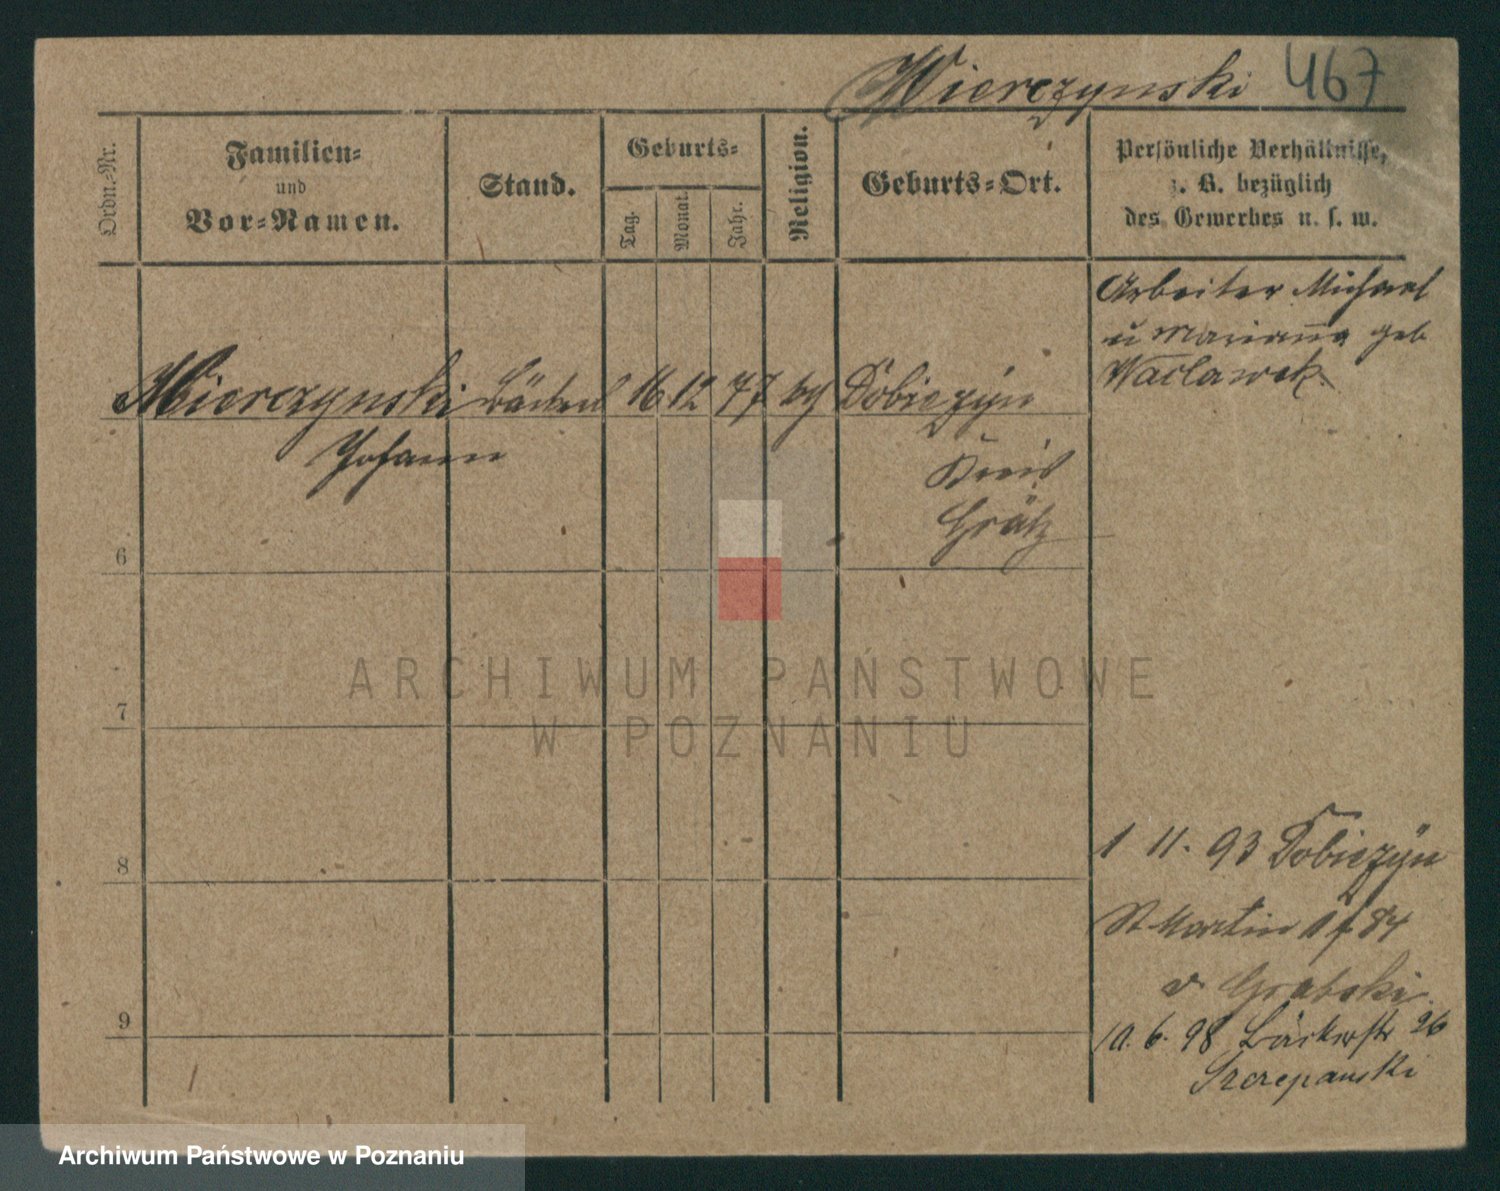 Wierczynski 467
Ordn.-Nr.
Familien-
und
Vor-Namen.
Stand.
Geburts-
Tag.
Monat.
Jahr.
Religion.
Geburts-Ort.
Persönliche Verhältnisse,
z. B. bezüglich
des Gewerbes u. s. w.
Arbeiter Michael
u Marianna geb
Waclawek
Wierczynski 16 12 77 Dobiezyn
Johann
Kreis
Grätz
6
7
8
9
1 11. 93 Dobiezyn
St Martin
v Grabski
10. 6. 98 Bäckerstr 26
Szczepanski
ARCHIWUM PAŃSTWOWE
W POZNANIU
Archiwum Państwowe w Poznaniu